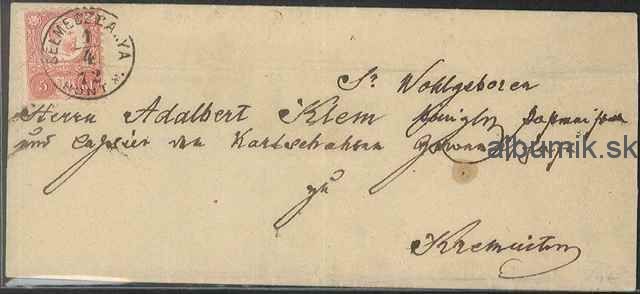 SELMECZBÁNYA
1
4
72
HONT
5
Sr Wohlgeboren
Herrn Adalbert Klem königln
und Cassier von Karlschahten
zu
Kremnitz
albumik.sk